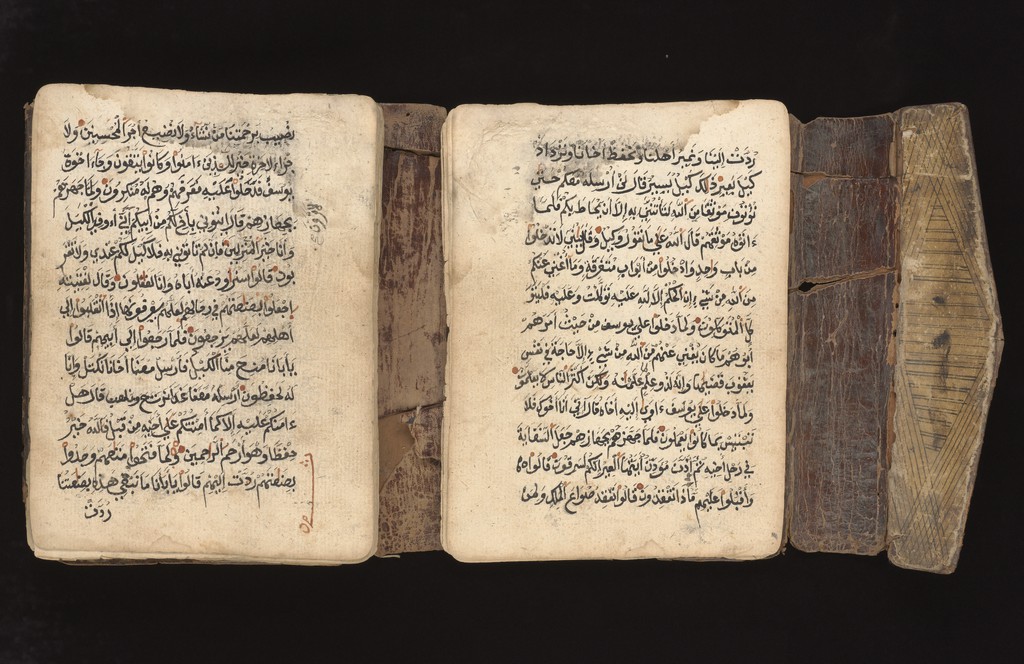 نصيب برحمتنا من نشاء ولا نضيع اجر المحسنين ولا
جر الاخرة خير للذين ءامنوا وكانوا يتقون وجاء اخوة
يوسف فدخلوا عليه فعرفهم وهم له منكرون ولما جهزهم
بجهازهم قال ائتوني باخ لكم من ابيكم اني اوف الكيل
الا ترون
وانا خير المنزلين فان لم تاتوني به فلا كيل لكم عندي ولا تقر
بون قالوا سنراود عنه اباه وانا لفعلون وقال لفتيته
اجعلوا بضعتهم في رحالهم لعلهم يعرفونها اذا انقلبوا الى
اهلهم لعلهم يرجعون فلما رجعوا الى ابيهم قالوا
يابانا منع منا الكيل فارسل معنا اخانا نكتل وانا
له لحفظون ارسله معنا غدا يرتع ويلعب قال هل
ءامنكم عليه الا كما امنتكم على اخيه من قبل فالله خير
حفظا وهو ارحم الراحمين ولما فتحوا متعهم وجدوا
بضعتهم ردت اليهم قالوا يابانا ما نبغي هذه بضعتنا
ردت
ردت الينا ونمير اهلنا ونحفظ اخانا ونزداد
كيل بعير ذلك كيل يسير قال لن ارسله معكم حتى
توتون موثقا من الله لتاتنني به الا ان يحاط بكم فلما
ءاتوه موثقهم قال الله على ما نقول وكيل وقال يبني لا تدخلوا
من باب واحد وادخلوا من ابواب متفرقة وما اغني عنكم
من الله من شيء ان الحكم الا لله عليه توكلت وعليه فليتو
كل المتوكلون ولما دخلوا على يوسف من حيث امرهم
ابوهم ما كان يغني عنهم من الله من شيء الا حاجة في نفس
يعقوب قضيها وانه لذو علم لما علمنه ولكن اكثر الناس لا يعلمون
ولما دخلوا على يوسف ءاوى اليه اخاه قال اني انا اخوك فلا
تبتئس بما كانوا يعملون فلما جهزهم بجهازهم جعل السقاية
في رحل اخيه ثم اذن موذن ايتها العير انكم لسرقون قالوا
واقبلوا عليهم ماذا تفقدون قالوا نفقد صواع الملك ولمن